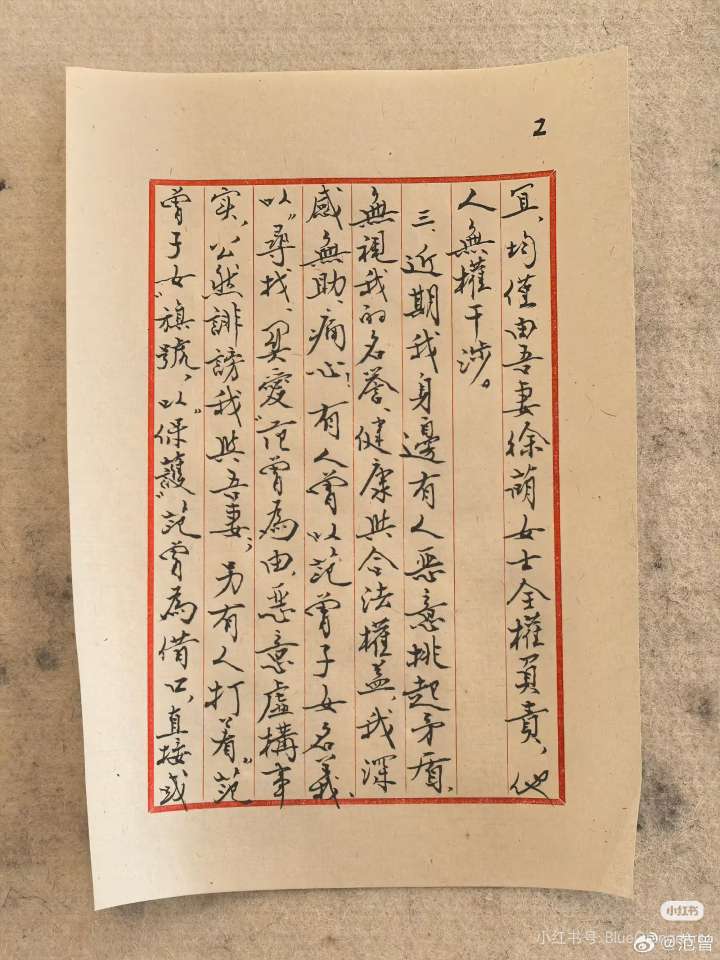 2
宜，均僅由吾妻徐萌女士全權負責，他
人無權干涉。
三、近期我身邊有人惡意挑起矛盾，
無視我的名誉、健康與合法權益，我深
感無助、痛心！有人曾以范曾子女名義，
以“尋找、關愛”范曾為由，惡意虛構事
实，公然誹謗我與吾妻；另有人打着“范
曾子女”旗號，以“保護”范曾為借口，直接或
小红书
小红书号:
@范曾